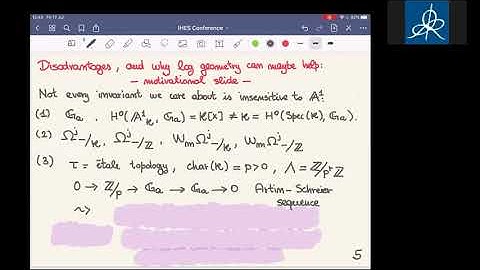 15:49 Fri 17 Jul
IHES Conference
Disadvantages, and why log geometry can maybe help:
— motivational slide —
Not every invariant we care about is insensitive to 𝔸¹:
(1) 𝔾ₐ . H⁰(𝔸¹ₖ, 𝔾ₐ) = k[x] ≠ k = H⁰(Spec(k), 𝔾ₐ).
(2) Ωʲ₋/ₖ, Ωʲ₋/ℤ, WₘΩʲ₋/ₖ, WₘΩʲ₋/ℤ
(3) τ = étale topology, char(k) = p > 0, Λ = ℤ/pʳℤ
0 → ℤ/p → 𝔾ₐ → 𝔾ₐ → 0 Artin–Schreier
sequence
⇝
5